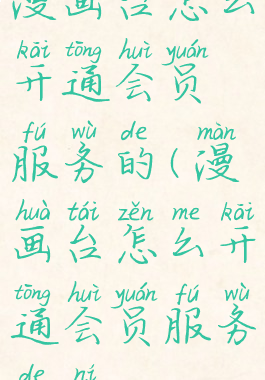 漫画台怎么
kāi tōng huì yuán
开通会员
fú wù de màn
服务的(漫
huà tái zěn me kāi
画台怎么开
tōng huì yuán fú wù
通会员服务
de